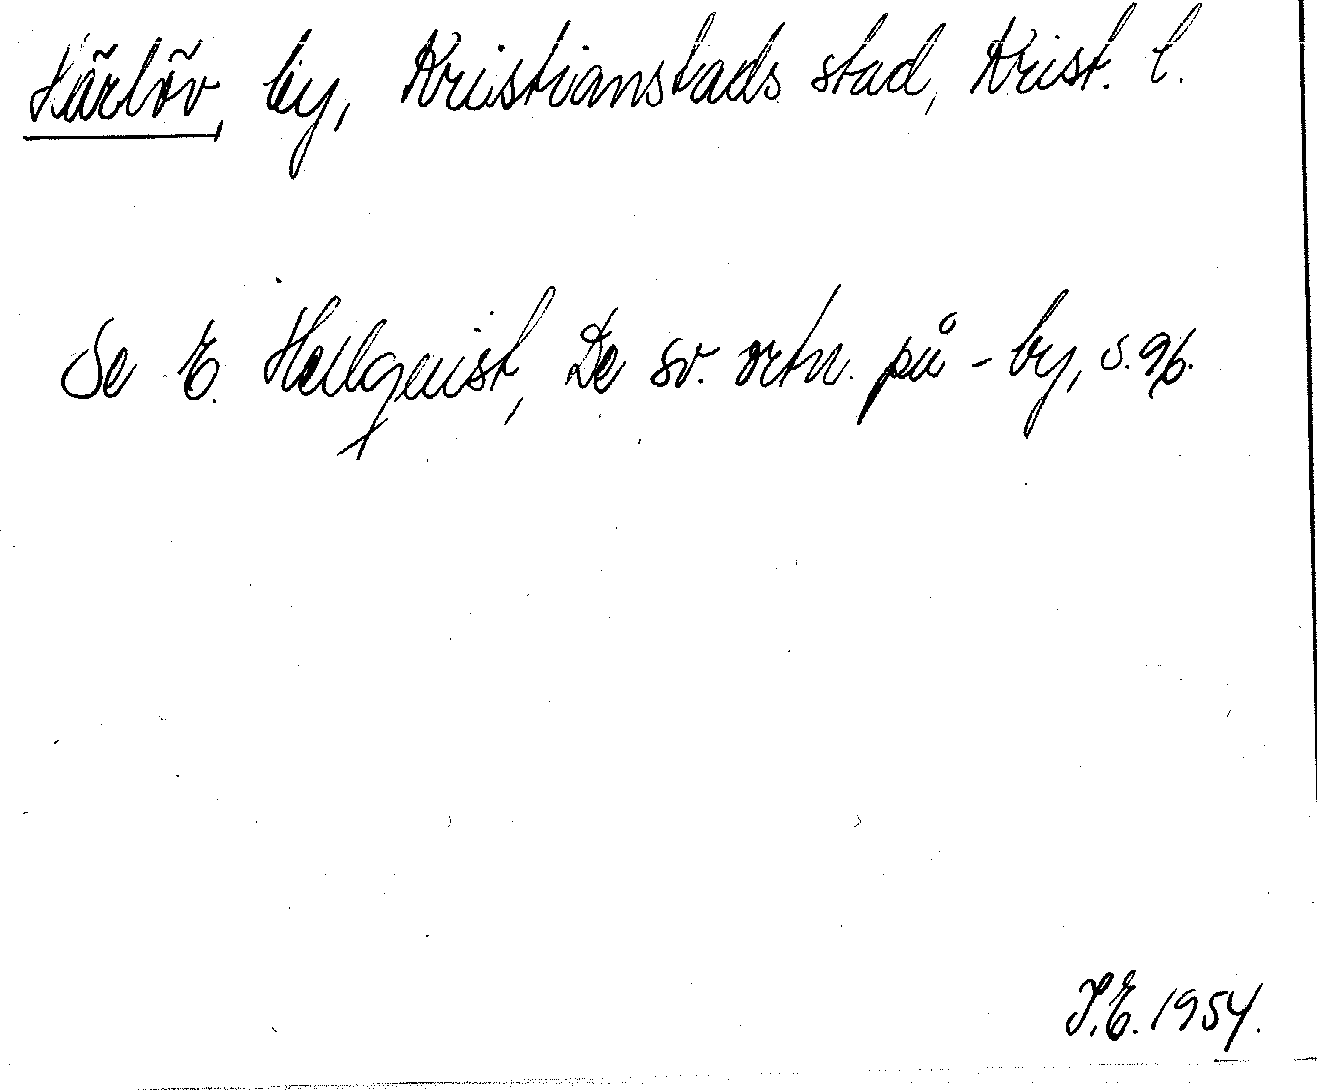 Härlöv, by, Kristianstads stad, Krist. l.
Se E. Hellquist, De sv. ortn. på -by, s. 96.
I.E. 1954.